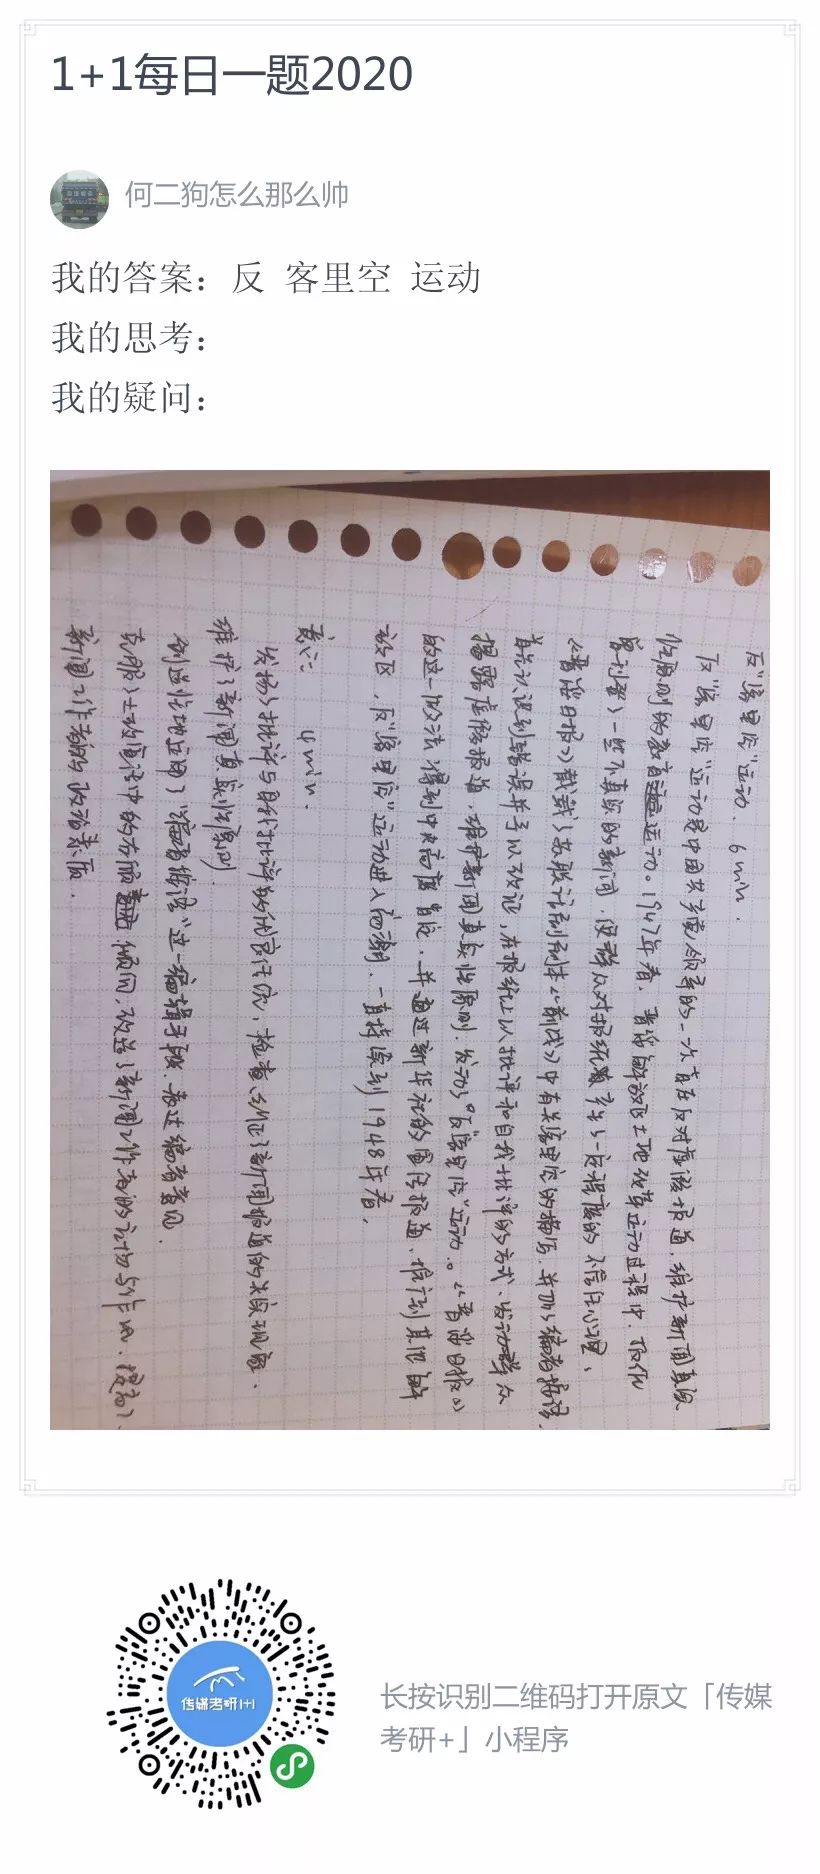 1+1每日一题2020
何二狗怎么那么帅
我的答案：反 客里空 运动
我的思考：
我的疑问：
反"客里空"运动. 6min.
反"客里空"运动是中国共产党领导的一次旨在反对虚假报道, 维护新闻真实
性原则的教育运动。1947年春, 晋绥解放区土地改革运动过程中, 报纸
刊登了一些不真实的新闻, 使群众对报纸产生了一定程度的不信任心理,
《晋绥日报》载刊了苏联话剧剧本《前线》中有关客里空的描写, 并加了编者按语,
其认识到错误并予以改正, 在报纸上以批评和自我批评的方式, 发动群众
揭露虚假报道, 维护新闻真实性原则, 发动了"反客里空"运动。《晋绥日报》
的这一做法得到中央高度肯定, 并通过新华社的宣传报道, 推行到其他解
放区, 反"客里空"运动进入高潮, 一直持续到1948年春,
意义: 4min.
发扬了批评与自我批评的优良作风, 检查纠正了新闻报道的失实现象,
维护了新闻真实性原则.
创造性地运用了"编者按语"这一编辑手段, 表达编者意见.
克服了土改宣传中的右倾倾向, 改进了新闻工作者的立场与作风, 提高了
新闻工作者的政治素质.
传媒考研1+1
长按识别二维码打开原文「传媒
考研+」小程序